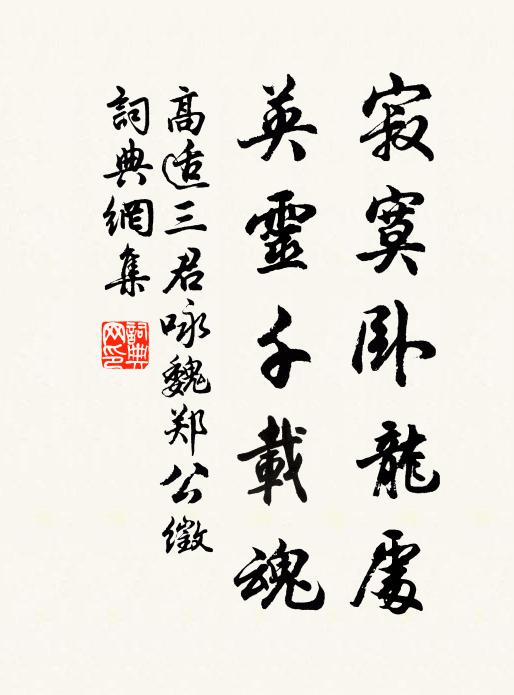 寂寞卧龍處
英靈千載魂
高适三君咏魏郑公徵
詞典網集
詞典网印